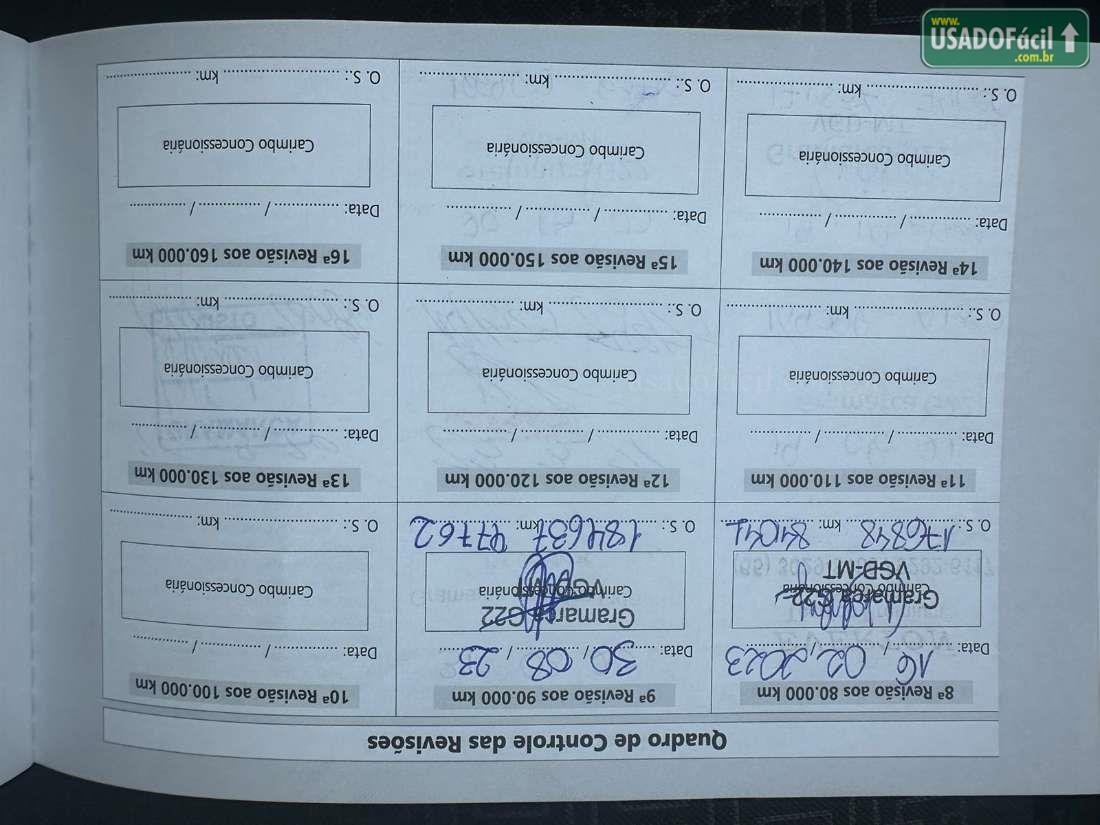 www.
USADOFácil
.com.br
Quadro de Controle das Revisões
8ª Revisão aos 80.000 km
Data: 16 / 02 / 2023
Carimbo Concessionária
Gramarca G22
VGD-MT
O. S.: 176848 km: 84041
9ª Revisão aos 90.000 km
Data: 30 / 08 / 23
Gramarca G22
Carimbo Concessionária
VGD-MT
O. S.: 184637 km: 97762
10ª Revisão aos 100.000 km
Data: / /
Carimbo Concessionária
O. S.: km:
11ª Revisão aos 110.000 km
Data: / /
Carimbo Concessionária
O. S.: km:
12ª Revisão aos 120.000 km
Data: / /
Carimbo Concessionária
O. S.: km:
13ª Revisão aos 130.000 km
Data: / /
Carimbo Concessionária
O. S.: km:
14ª Revisão aos 140.000 km
Data: / /
Carimbo Concessionária
O. S.: km:
15ª Revisão aos 150.000 km
Data: / /
Carimbo Concessionária
O. S.: km:
16ª Revisão aos 160.000 km
Data: / /
Carimbo Concessionária
O. S.: km: